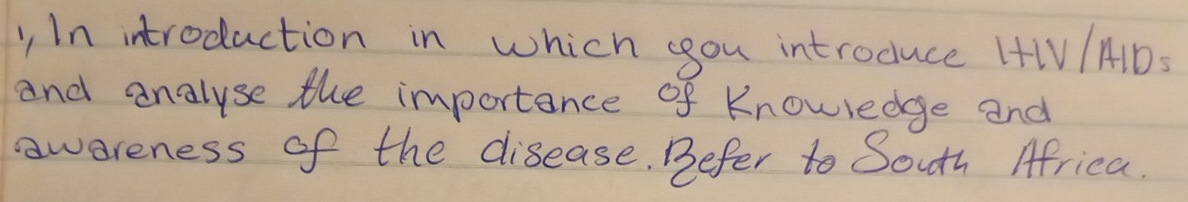 1, In introduction in which you introduce HIV/AIDs
and analyse the importance of Knowledge and
awareness of the disease. Refer to South Africa.